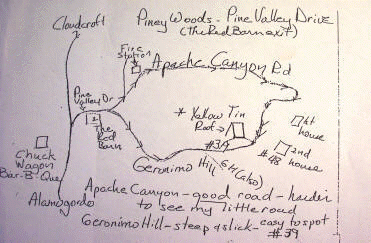 Piney Woods - Pine Valley Drive
(The Red Barn exit)
Cloudcroft
Fire
Station
Apache Canyon Rd
Pine
Valley Dr
The
Red
Barn
* Yellow Tin
Roof
#39
1st
house
2nd
house
#48
Chuck
Wagon
Bar-B-Que
Geronimo Hill
Alamogordo
Apache Canyon - good road - harder
to see my little road
Geronimo Hill - steep & slick - easy to spot
#39